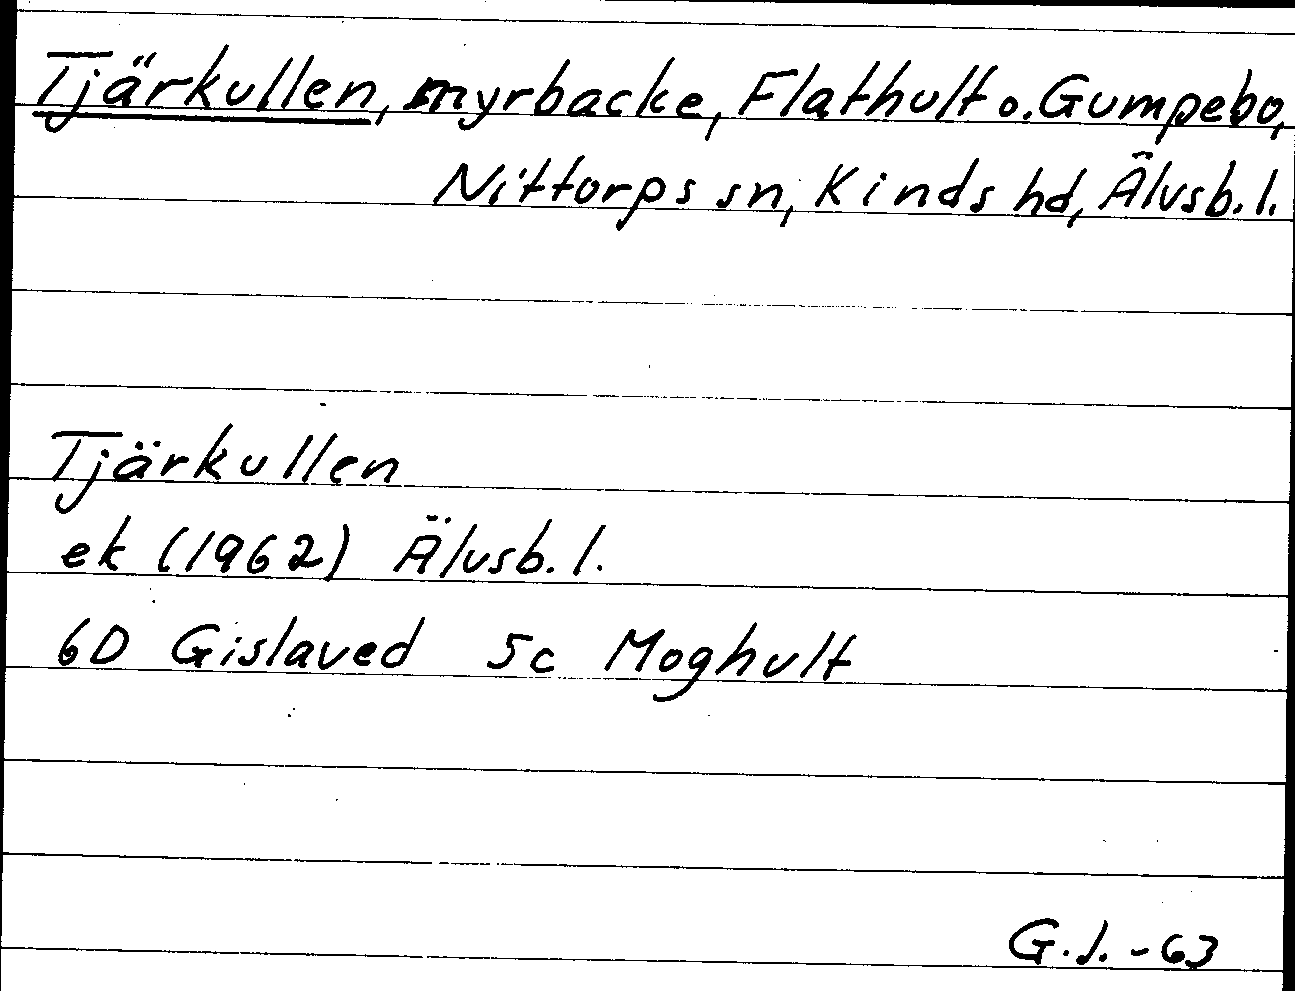 Tjärkullen, myrbacke, Flathult o. Gumpebo,
Nittorps sn, Kinds hd, Älvsb. l.
Tjärkullen
ek (1962) Älvsb. l.
6D Gislaved 5c Moghult
G.J. -63